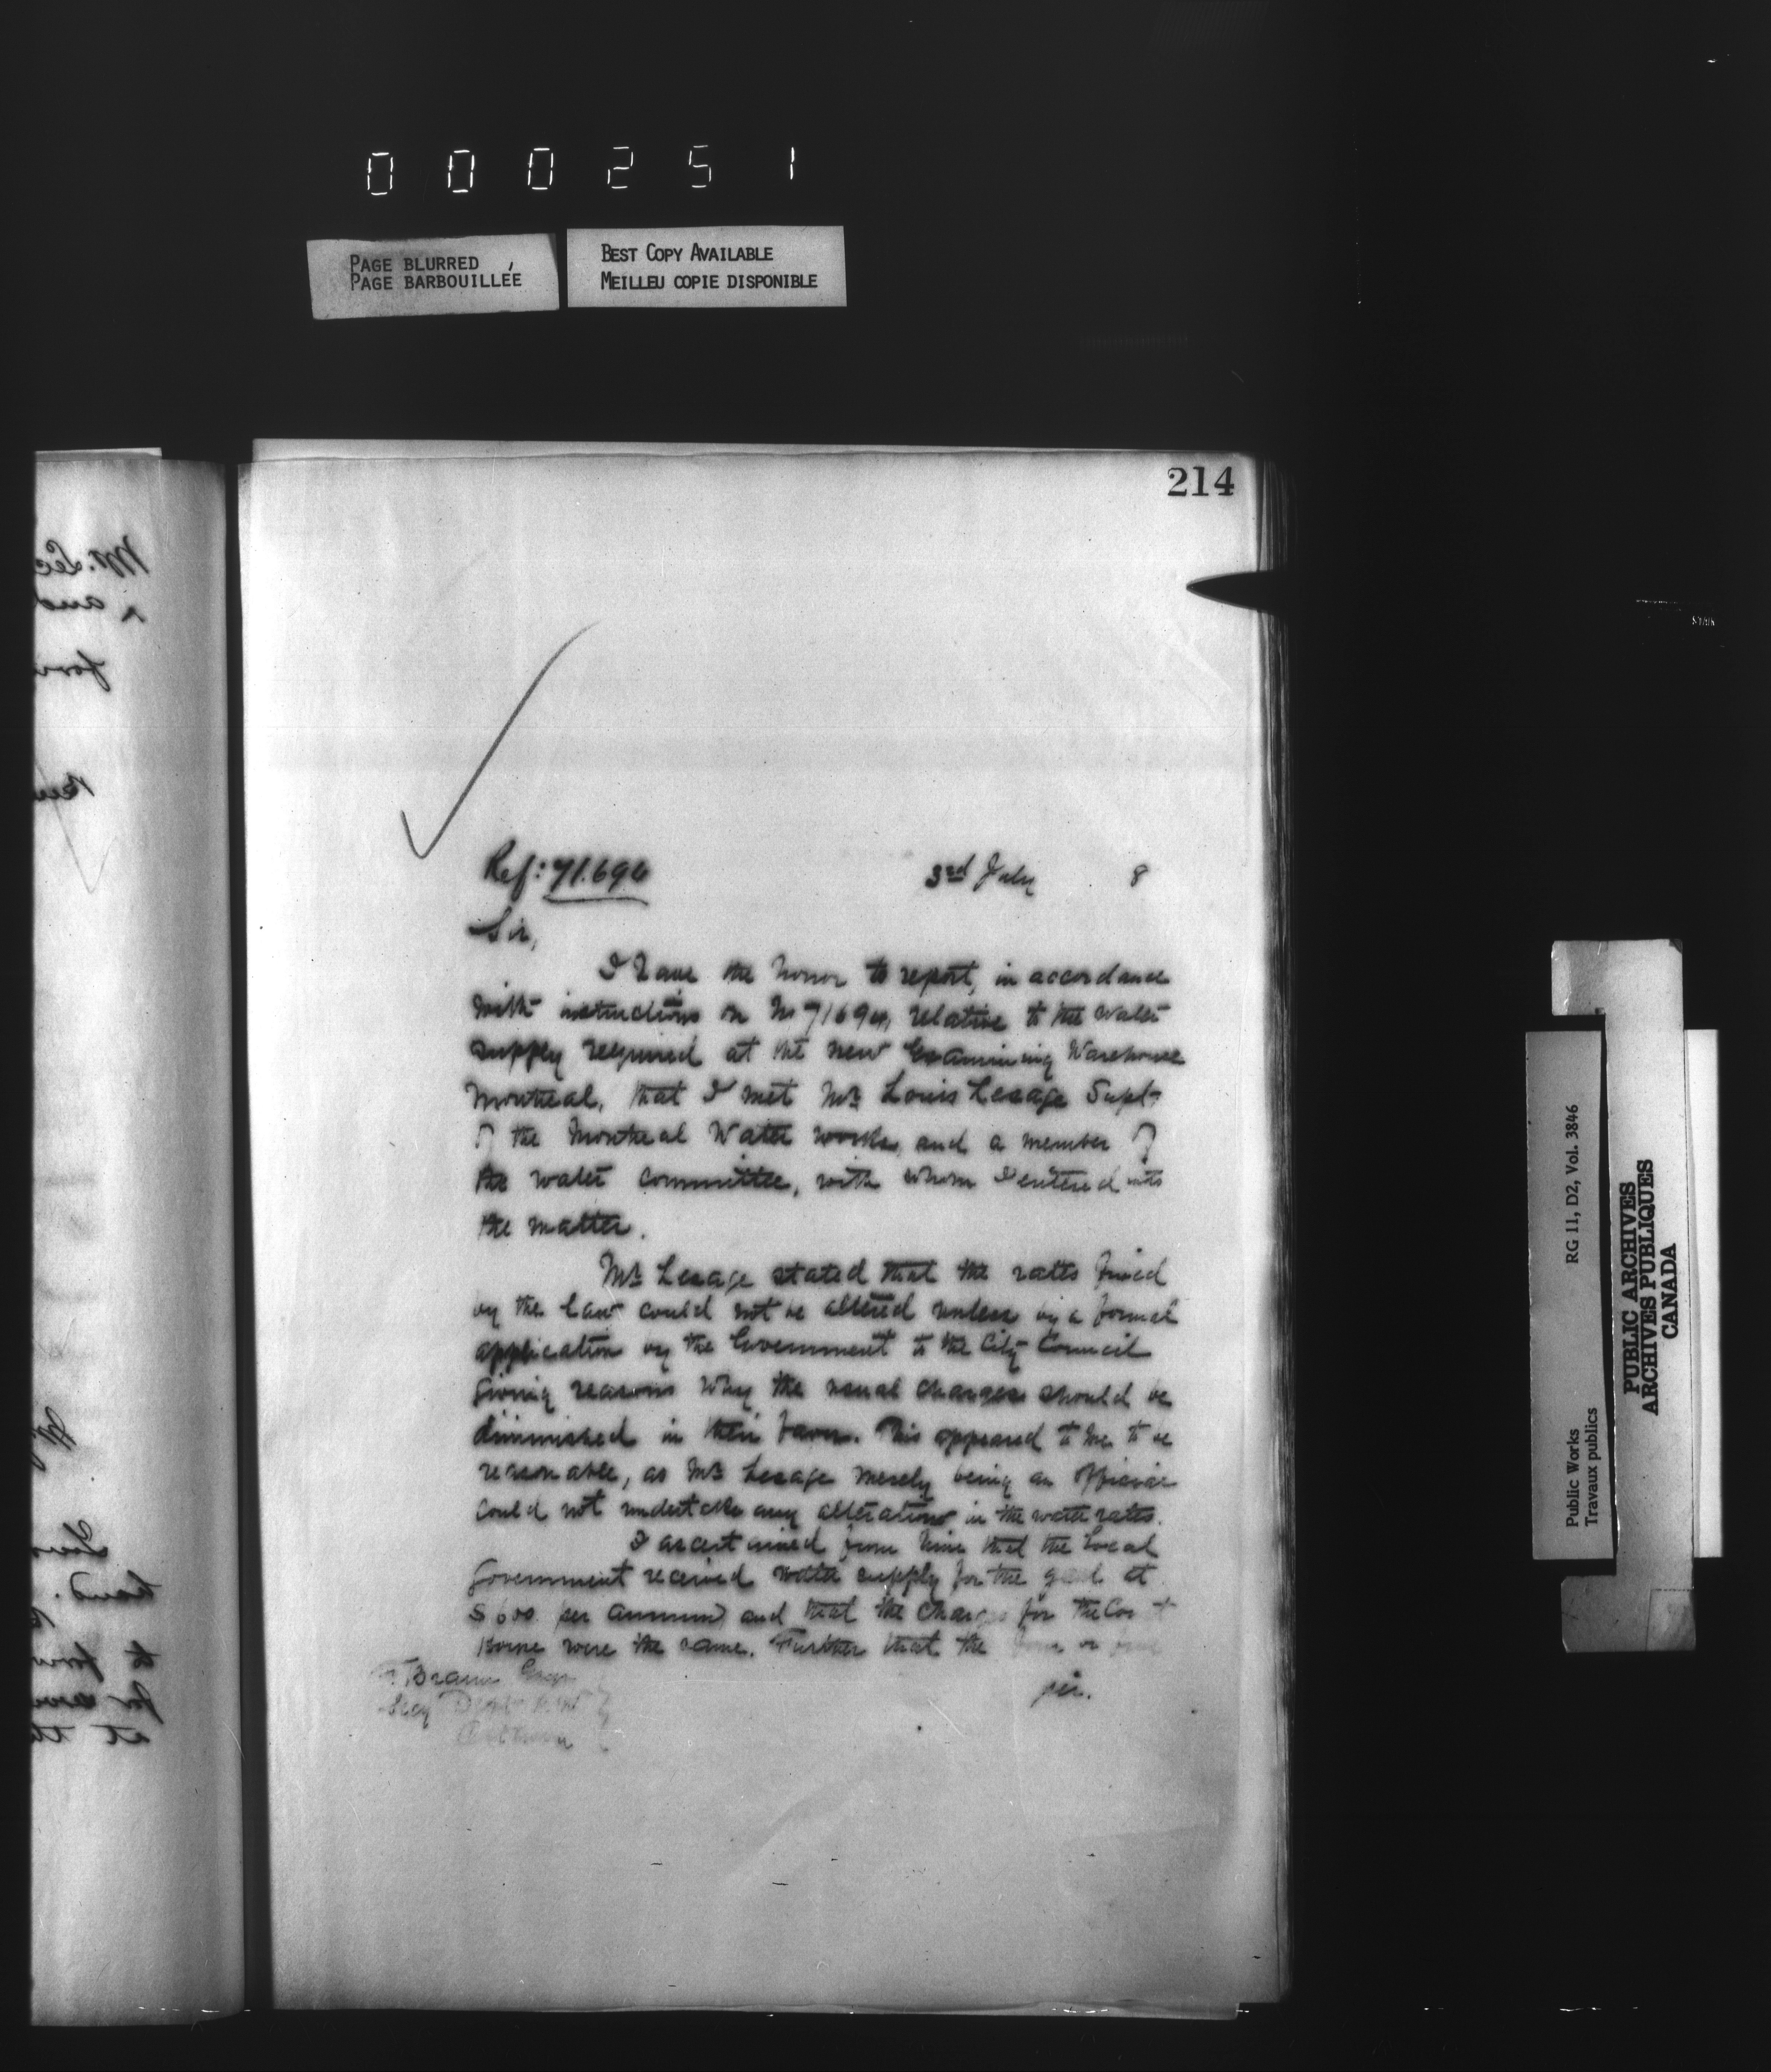 000251
PAGE BLURRED
PAGE BARBOUILLÉE
BEST COPY AVAILABLE
MEILLEU COPIE DISPONIBLE
214
Ref: 71.694
3rd July 8
Sir,
I have the honor to report, in accordance
with instructions on No 71694, relative to the water
supply required at the new Examining Warehouse
Montreal, that I met Mr Louis Lesage Supt
of the Montreal Water works, and a member of
the water committee, with whom I entered into
the matter.
Mr Lesage stated that the rates fixed
by the Law could not be altered unless by a formal
application by the Government to the City Council
giving reasons why the usual charges should be
diminished in their favor. This appeared to me to be
reasonable, as Mr Lesage merely being an official
could not undertake any alterations in the water rates.
I ascertained from him that the Local
Government received water supply for the gaol at
$600 per annum and that the charges for the Court
House were the same. Further that the
F. Braun Esqr
Secy Dept P. W.
Ottawa
RG 11, D2, Vol. 3846
Public Works
Travaux publics
PUBLIC ARCHIVES
ARCHIVES PUBLIQUES
CANADA